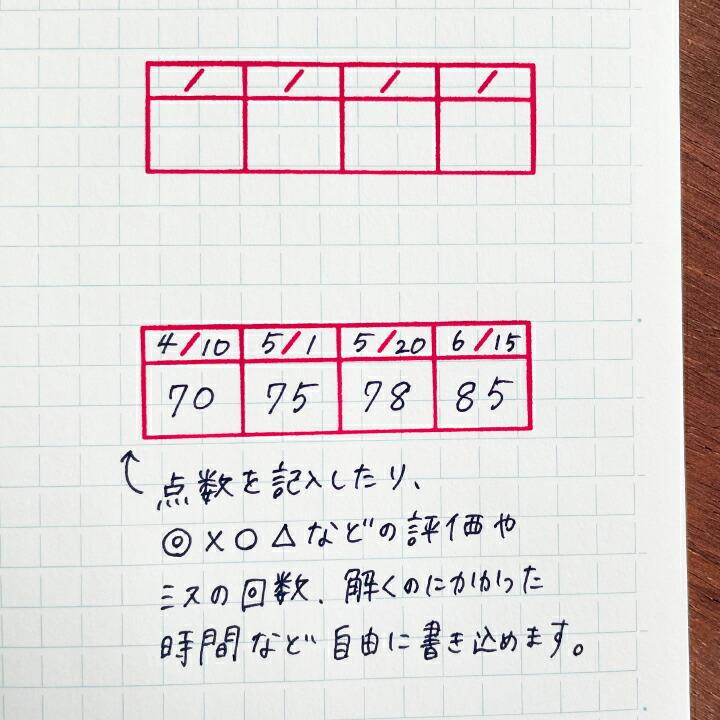 / / / /
4/10 5/1 5/20 6/15
70 75 78 85
点数を記入したり、
◎×○△などの評価や
ミスの回数、解くのにかかった
時間など自由に書き込めます。